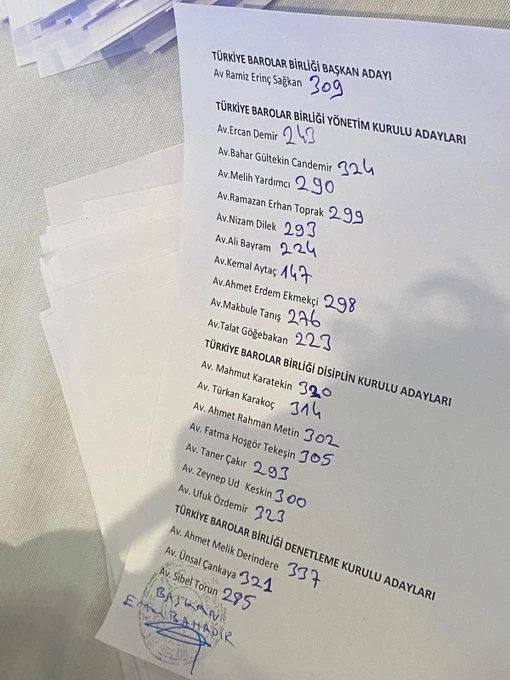 TÜRKİYE BAROLAR BİRLİĞİ BAŞKAN ADAYI
Av Ramiz Erinç Sağkan 309
TÜRKİYE BAROLAR BİRLİĞİ YÖNETİM KURULU ADAYLARI
Av.Ercan Demir 243
Av.Bahar Gültekin Candemir 324
Av.Melih Yardımcı 290
Av.Ramazan Erhan Toprak 299
Av.Nizam Dilek 293
Av.Ali Bayram 224
Av.Kemal Aytaç 147
Av.Ahmet Erdem Ekmekçi 298
Av.Makbule Tanış 276
Av.Talat Göğebakan 223
TÜRKİYE BAROLAR BİRLİĞİ DİSİPLİN KURULU ADAYLARI
Av. Mahmut Karatekin 320
Av. Türkan Karakoç 314
Av. Ahmet Rahman Metin 302
Av. Fatma Hoşgör Tekeşin 305
Av. Taner Çakır 293
Av. Zeynep Ud Keskin 300
Av. Ufuk Özdemir 323
TÜRKİYE BAROLAR BİRLİĞİ DENETLEME KURULU ADAYLARI
Av. Ahmet Melik Derindere 337
Av. Ünsal Çankaya 321
Av. Sibel Torun 285
BAŞKAN
BAHADIR